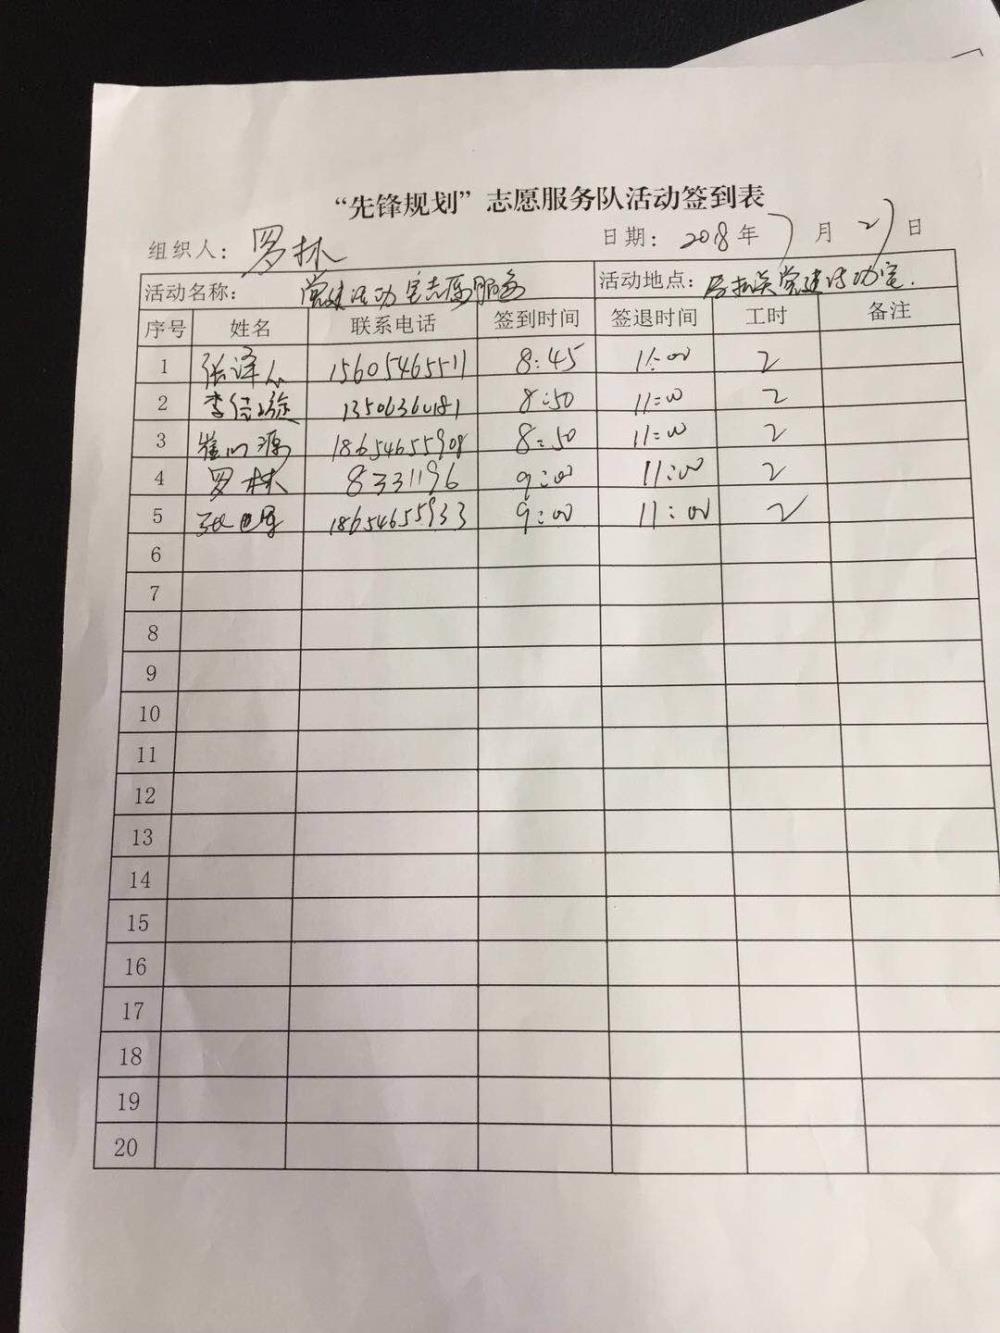 “先锋规划”志愿服务队活动签到表
组织人: 罗林 日期: 2018年7月27日
活动名称: 党建活动室志愿服务 活动地点: 党建活动室.
序号 姓名 联系电话 签到时间 签退时间 工时 备注
1 张泽 15605465511 8:45 11:00 2
2 李 8:50 11:00 2
3 崔 18654655908 8:50 11:00 2
4 罗林 8331196 9:00 11:00 2
5 18654655933 9:00 11:00 2
6
7
8
9
10
11
12
13
14
15
16
17
18
19
20